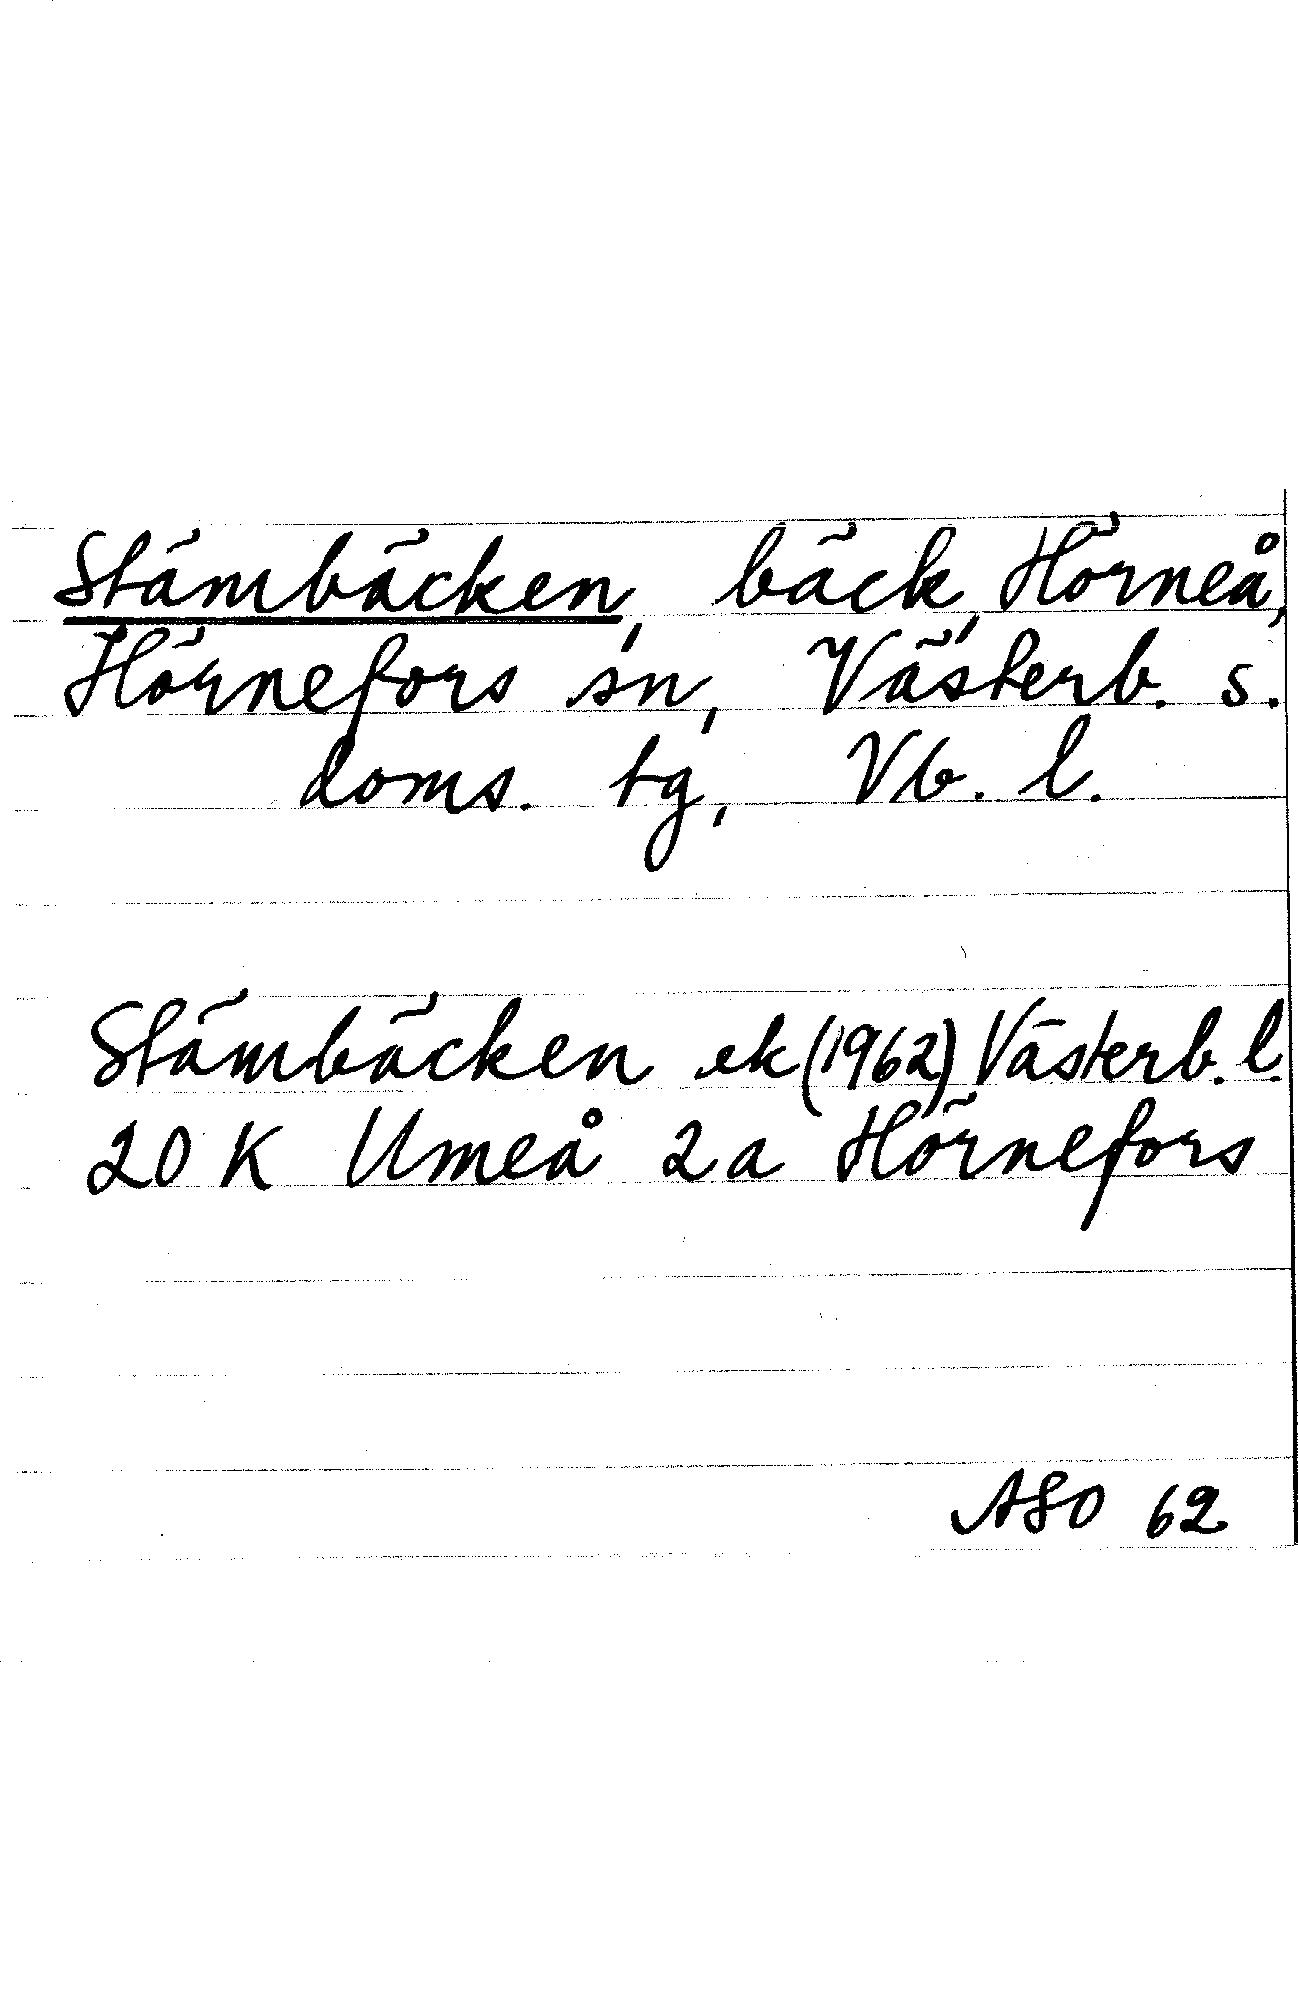 Stämbäcken, bäck, Hörneå,
Hörnefors sn, Västerb. s.
doms. tg, Vb. l.
Stämbäcken ek (1962) Västerb. l.
20 K Umeå 2a Hörnefors
ASO 62